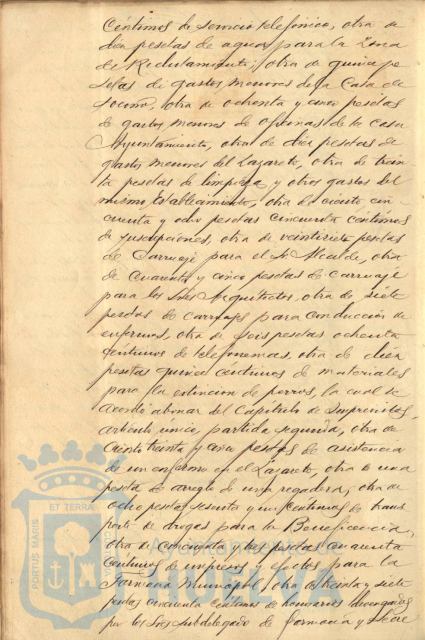 céntimos de servicio telefónico, otra de
diez pesetas de agua para la Zona
de Reclutamiento; otra de quince pe
setas de gastos menores de la Casa de
Socorro, otra de ochenta y cinco pesetas
de gastos menores de oficinas de la casa
Ayuntamiento, otra de diez pesetas de
gastos menores del Lazareto, otra de trein
ta pesetas de limpieza y otros gastos del
mismo Establecimiento, otra de ciento cin
cuenta y ocho pesetas cincuenta céntimos
de suscripciones, otra de veintisiete pesetas
de Carruaje para el Sr. Alcalde, otra
de cuarenta y cinco pesetas de carruaje
para los Sres Arquitectos, otra de siete
pesetas de carruaje para conducción de
enfermos, otra de seis pesetas ochenta
céntimos de telefonemas, otra de diez
pesetas quince céntimos de materiales
para la extinción de perros, la cual se
acordó abonar del Capítulo de Imprevistos,
artículo único, partida segunda, otra de
ciento treinta y cinco pesetas de asistencia
de un enfermo en el Lazareto, otra de una
peseta de arreglo de una regadera, otra de
ocho pesetas sesenta y un céntimos de trans
porte de drogas para la Beneficencia,
otra de cincuenta y tres pesetas cincuenta
céntimos de impresos y efectos para la
Farmacia Municipal, otra de treinta y siete
pesetas cincuenta céntimos de honorarios devengados
por los Sres Subdelegado de farmacia y
PORTUS MARIS ET TERRA
Ayuntamiento de
HUELVA